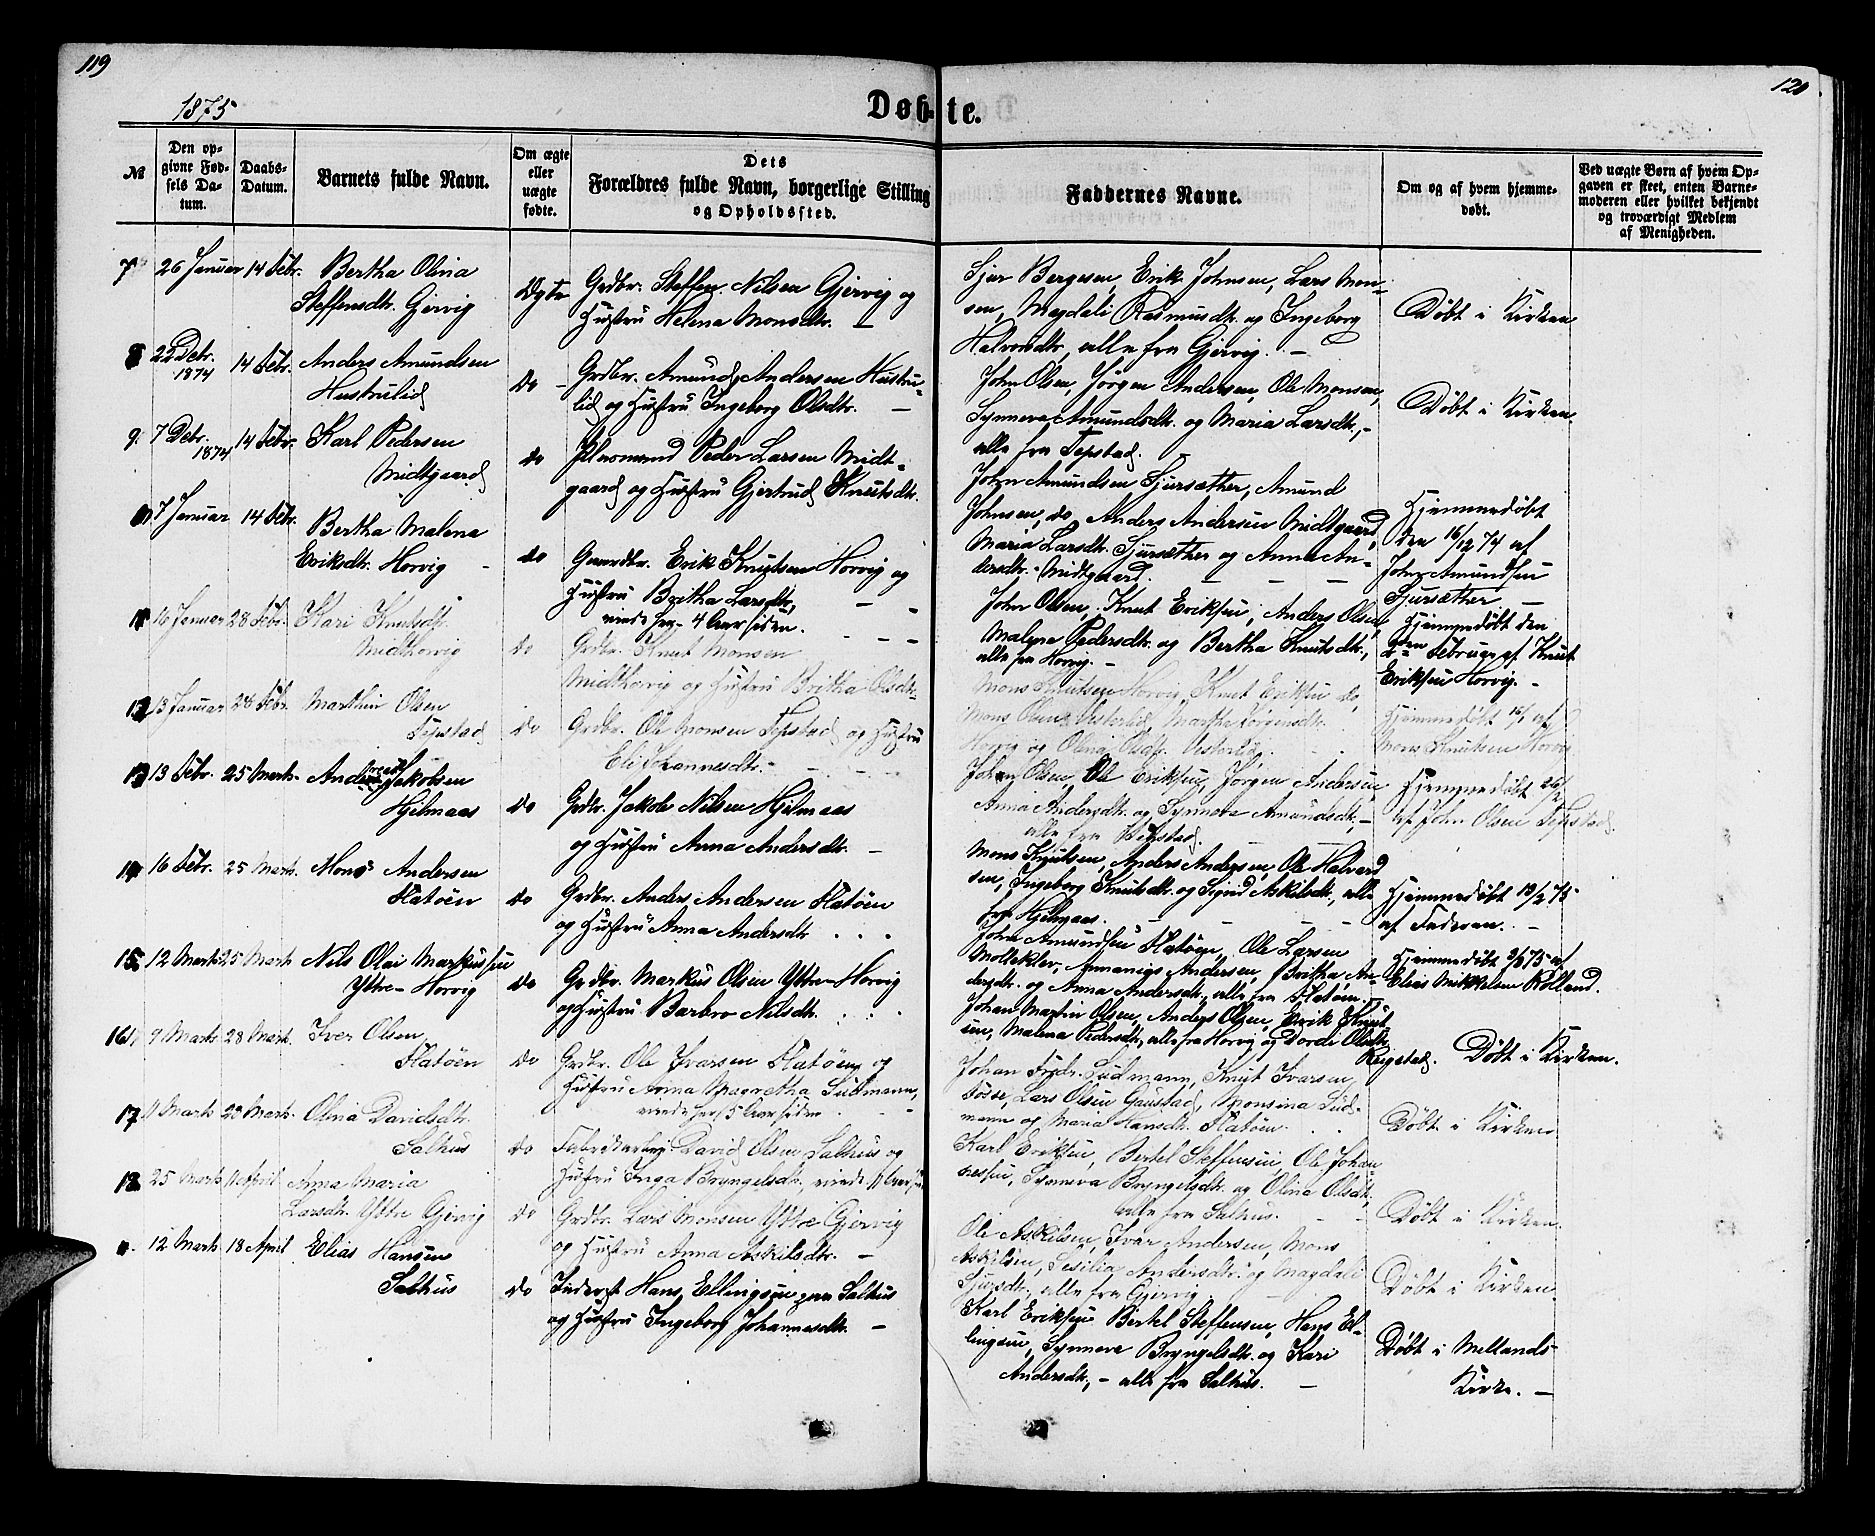 119
120
1875
Døbte.
№
Den op-
givne Fød-
sels Da-
tum.
Daabs-
Datum.
Barnets fulde Navn.
Om ægte
eller
uægte
fødte.
Dets
Forældres fulde Navn, borgerlige Stilling
og Opholdssted.
Faddernes Navne.
Om og af hvem hjemme-
døbt.
Ved uægte Børn af hvem Op-
gaven er skeet, enten Barne-
moderen eller hvilket bekjendt
og troværdigt Medlem
af Menigheden.
7 26 Januar 14 Febr. Bertha Olina
Steffensdtr. Gjervig
Ægte Grdbr. Steffen Nilsen Gjervig og
Hustru Helena Monsdtr. –
Sjur Bergesen, Erik Johnsen, Lars Mon-
sen, Magdali Rasmusdtr. og Ingeborg
Halvorsdtr, alle fra Gjervig. –
Døbt i Kirken
8 22 Debr. 1874 14 Febr. Anders Amundsen
Hustrulid
do – Grdbr. Amund Andersen Hustru-
lid og Hustru Ingeborg Olsdtr. –
John Olsen, Jörgen Andersen, Ole Monsen,
Synneva Amundsdtr. og Maria Larsdtr, –
alle fra Tepstad.
Døbt i Kirken.
9. 7 Debr. 1874 14 Febr. Karl Pedersen
Midtgaard
do Peder Larsen Midt-
gaard og Hustru Gjertrud Knutsdtr.
John Amundsen Sjursæther, Amund
Johnsen, do, Anders Andersen Midtgaard,
Maria Larsdtr. Sjursæther og Anna An-
dersdtr. Midtgaard.
Hjemmedøbt
den 16/12 74 af
John Amundsen
Sjursæther –
7 Januar 14 Febr. Bertha Malena
Eriksdtr. Horvig –
do Erik Knutsen Horvig og
Hustru Britha Larsdtr,
viede her 4 Aar siden.
John Olsen, Knut Eriksen, Anders Olsen,
Malene Pedersdtr. og Bertha Knutsdtr,
alle fra Horvig. –
Hjemmedøbt den
Februar af Knut
Eriksen Horvig. –
16 Januar 28 Febr. Kari Knutsdtr.
Midthorvig
do Grdbr. Knut Monsen
Midthorvig og Hustru Britha Olsdtr.
Mons Knutsen Horvig, Knut Eriksen do,
Mons Olsen Vesterlid, Martha Jörgensdtr.
Horvig og Olina Olsdtr. Vesterlid.
Hjemmedøbt 16/1 af
Mons Knutsen Horvig
12 13 Januar 28 Febr. Marthin Olsen
Tepstad
do Grdbr. Ole Monsen Tepstad og Hustru
Eli Johannesdtr. –
Johan Olsen, Ole Eriksen, Jörgen Andersen,
Anna Andersdtr. og Synneva Amundsdtr, –
alle fra Tepstad.
Hjemmedøbt
af John Olsen Tepstad.
13 13 Febr. 25 Marts Andreas Jakobsen
Hjelmaas
do Grdbr. Jakob Nilsen Hjelmaas
og Hustru Anna Andersdtr. –
Mons Knutsen, Anders Andersen, Ole Halvard-
sen, Ingeborg Knutsdtr. og Sigrid Askilsdtr., alle
fra Hjelmaas.
Hjemmedøbt 19/2 75
af Faderen. –
14 16 Febr. 25 Marts Mons Andersen
Flatöen
do Grdbr. Anders Andersen Flatöen
og Hustru Anna Andersdtr.
John Amundsen Flatöen, Ole Larsen
Mollekler, Annanias Andersen, Britha An-
dersdtr. og Anna Andersdtr., alle fra Flatöen.
Hjemmedøbt 75 af
Elias Mikkelsen Rolland.
15. 12 Marts 25 Marts Nils Olai Markussen
Ytre-Horvig
do Grdbr. Markus Olsen Ytre-Horvig
og Hustru Barbro Nilsdtr.
Johan Martin Olsen, Anders Olsen, Erik Knut-
sen, Malena Pedersdtr, alle fra Horvig og Dorde Olsdtr.
Reigstad. Døbt i Kirken.
16 9 Marts 28 Marts. Iver Olsen
Flatöen
do Grdbr. Ole Ivarsen Flatöen og
Hustru Anna Margretha Südmann,
viede her 5 Aar siden
Johan Fredr. Südmann, Knut Ivarsen
Tosse, Lars Olsen Gaustad, Monsina Süd-
mann og Maria Hansdtr. Flatöen.
Døbt i Kirken
17 11 Marts 29 Marts. Olina Davidsdtr.
Salhus
do David Olsen Salhus og
Hustru Inga Bryngelsdtr, viede
Karl Eriksen, Bertel Steffensen, Ole Johan-
nessen, Synneva Bryngelsdtr. og Olina Olsdtr,
alle fra Salhus.
Døbt i Kirken.
18. 25 Marts 11 April Anna Maria
Larsdtr. Ytre Gjervig
do Grdbr. Lars Monsen Ytre Gjervig
og Hustru Anna Askilsdtr. –
Ole Askilsen, Ivar Andersen, Mons
Askilsen, Sesilia Andersdtr. og Magdali
Sjursdtr, alle fra Gjervig.
Døbt i Kirken.
12 Marts 18 April Elias Hansen
Salhus
do Inderst Hans Ellingsen paa Salhus
og Hustru Ingeborg Johannesdtr. –
Karl Eriksen Bertel Steffensen, Hans El-
lingsen, Synneva Bryngelsdtr. og Kari
Andersdtr, – alle fra Salhus. –
Døbt i Mellands-
Kirke. –